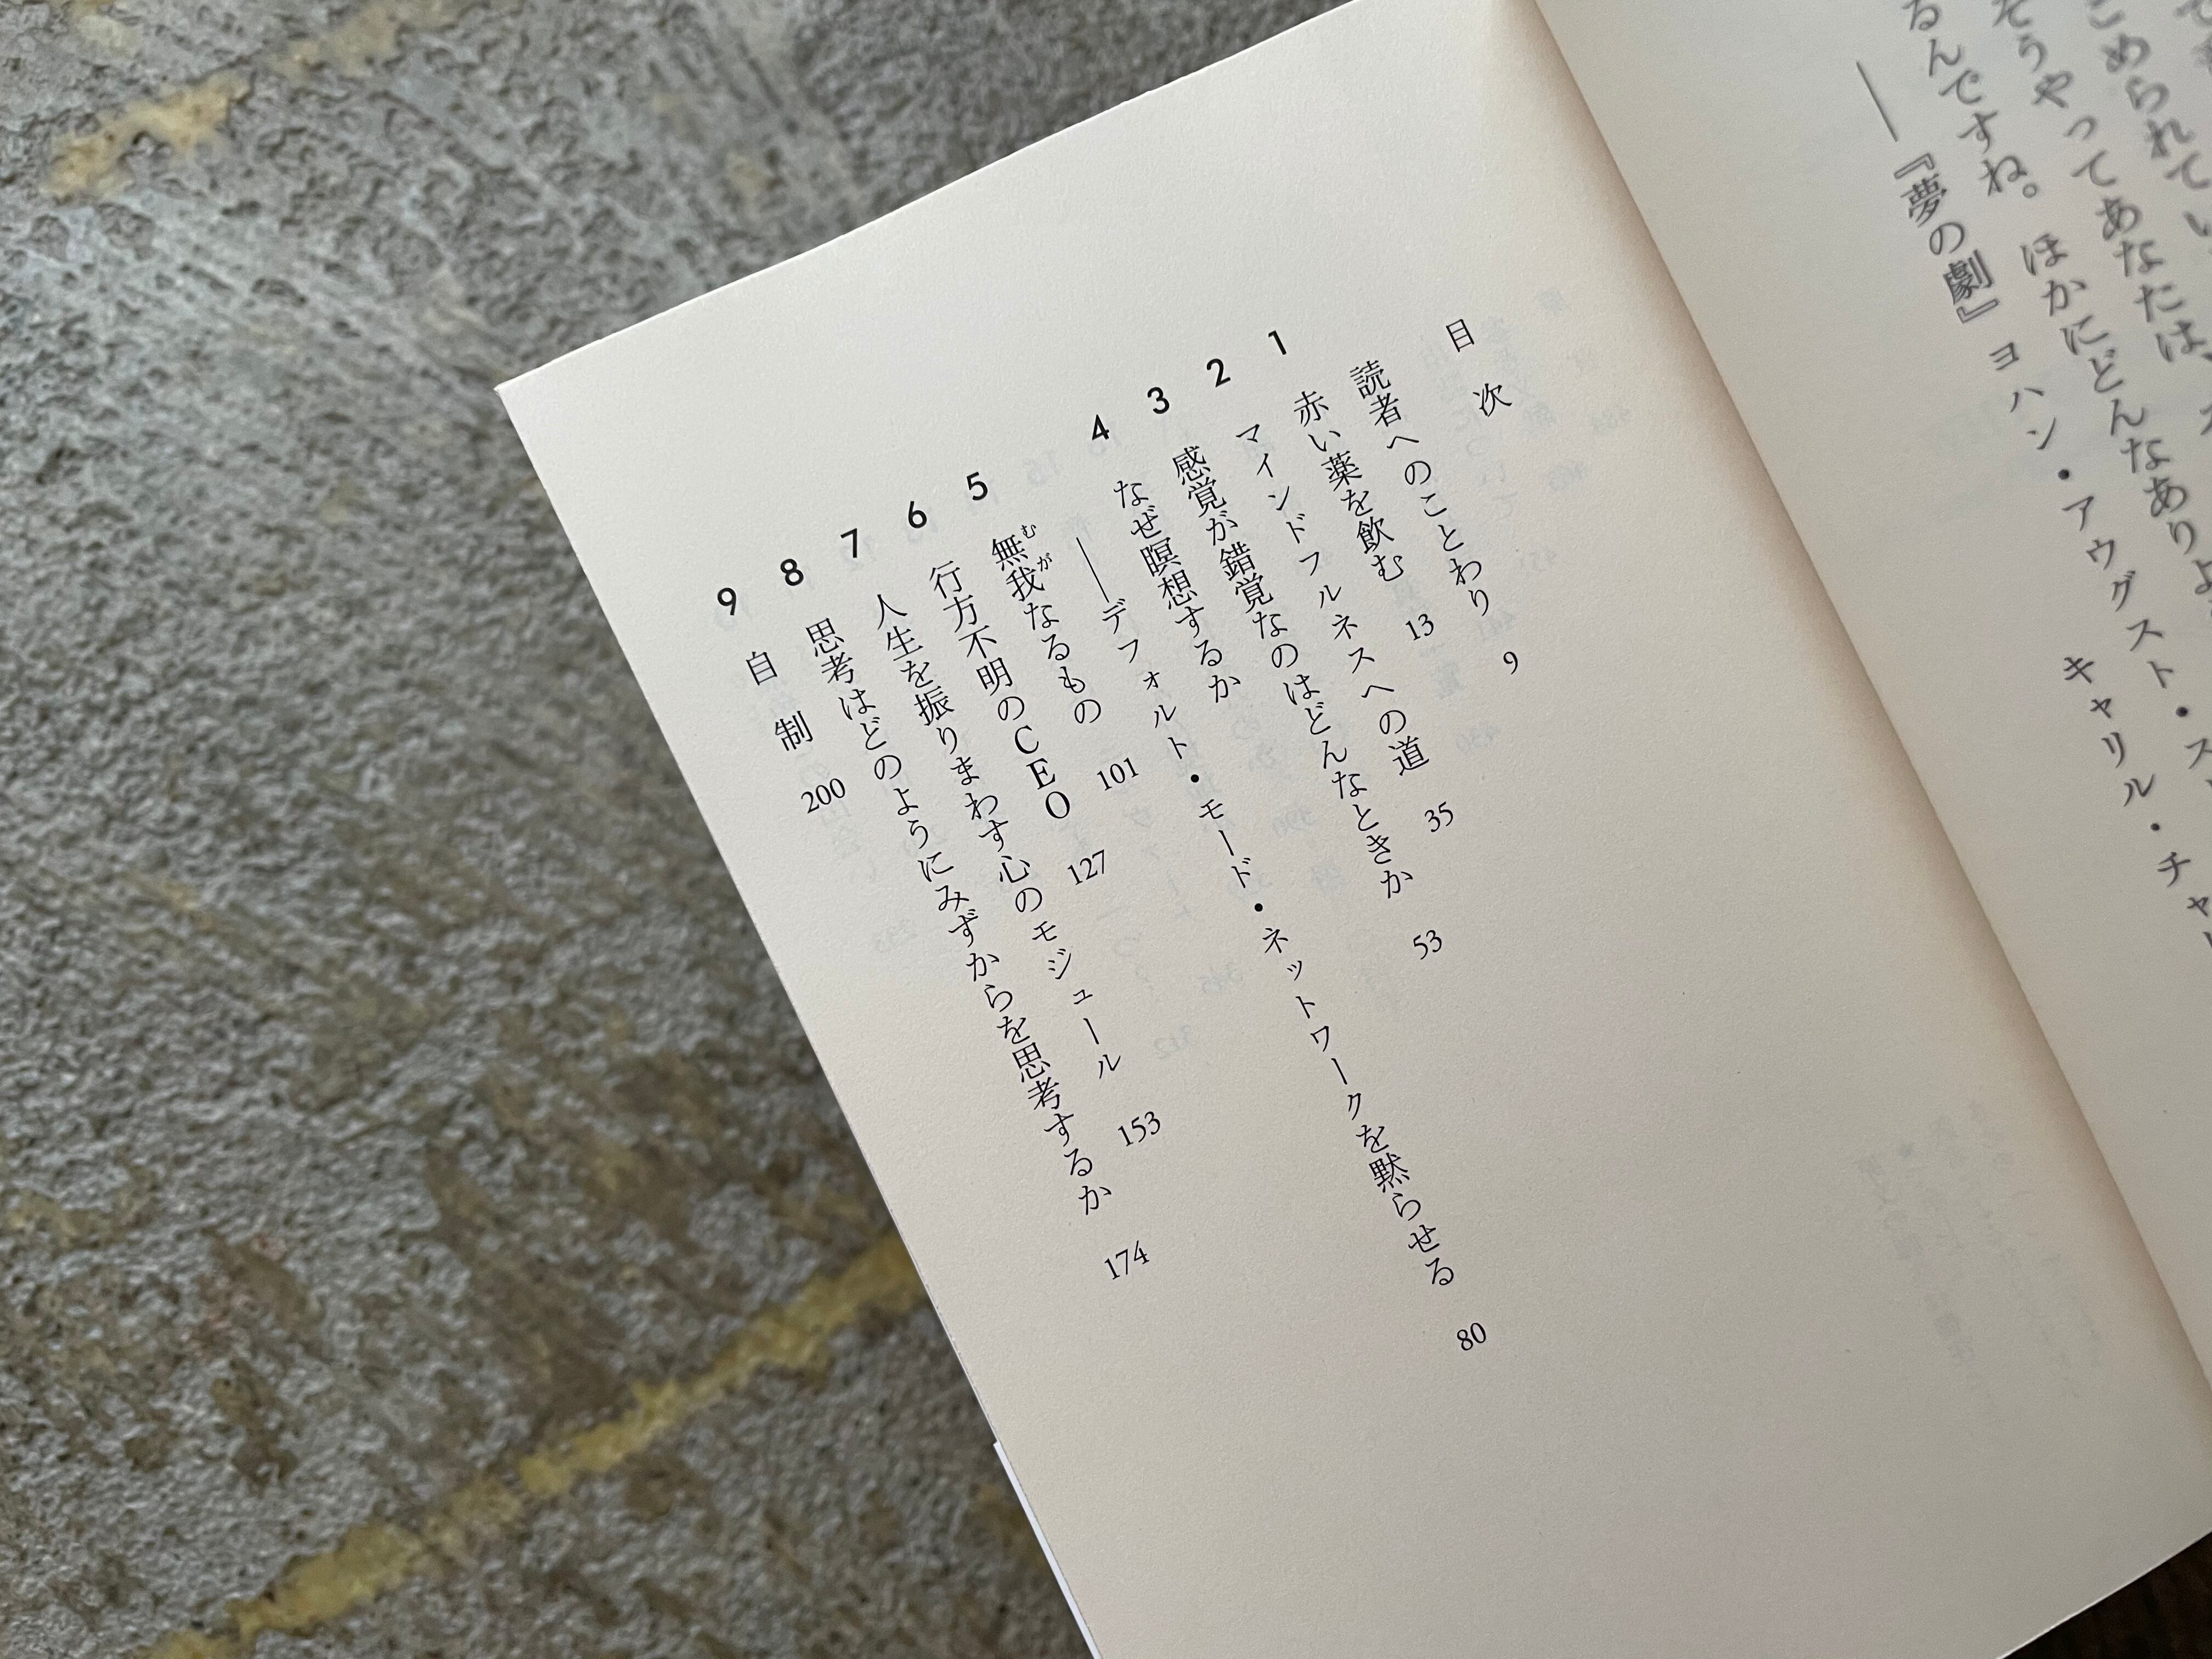 こめられてい
そうやってあなたは、
るんですね。ほかにどんなありよ
――『夢の劇』ヨハン・アウグスト・ス
キャリル・チャ
目次
読者へのことわり 9
1 赤い薬を飲む 13
2 マインドフルネスへの道 35
3 感覚が錯覚なのはどんなときか 53
4 なぜ瞑想するか
――デフォルト・モード・ネットワークを黙らせる 80
5 無我なるもの 101
むが
6 行方不明のCEO 127
7 人生を振りまわす心のモジュール 153
8 思考はどのようにみずからを思考するか 174
9 自制 200